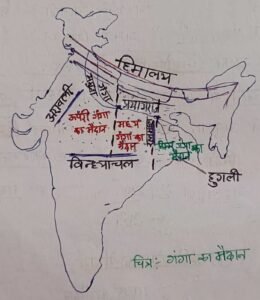 हिमालय
अरावली
यमुना
गंगा
प्रयागराज
ऊपरी गंगा
का मैदान
मध्य
गंगा का
मैदान
निम्न गंगा का
मैदान
विन्ध्याचल
हुगली
चित्र:- गंगा का मैदान